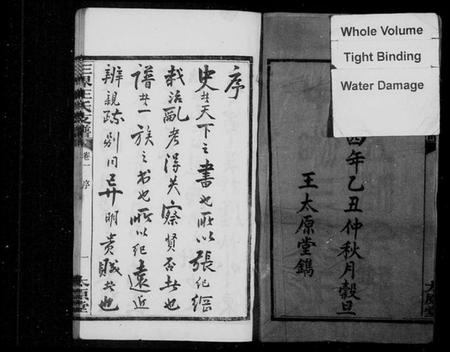 Whole Volume
Tight Binding
Water Damage
四年乙丑仲秋月穀旦
王太原堂鐫
序
史者天下之書也所以張紀綱
裁治亂考得失察賢否者也
譜者一族之書也所以紀遠近
辨親疏別同異明貴賤者也
王氏支譜
卷一
序
一
太原堂
太原堂